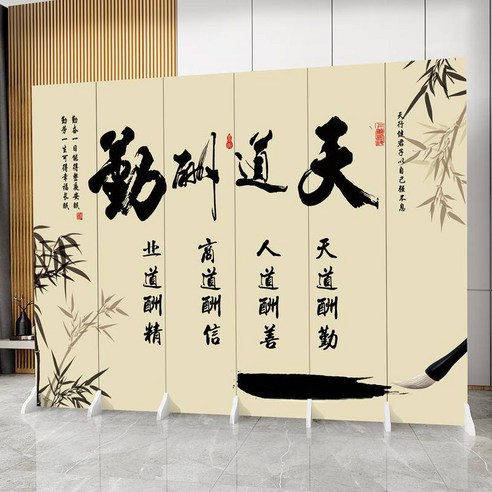 天行健君子以自己强不息
天道酬勤
天道酬勤
人道酬善
商道酬信
业道酬精
勤奋一日能得整夜安眠
勤劳一生可得幸福长眠